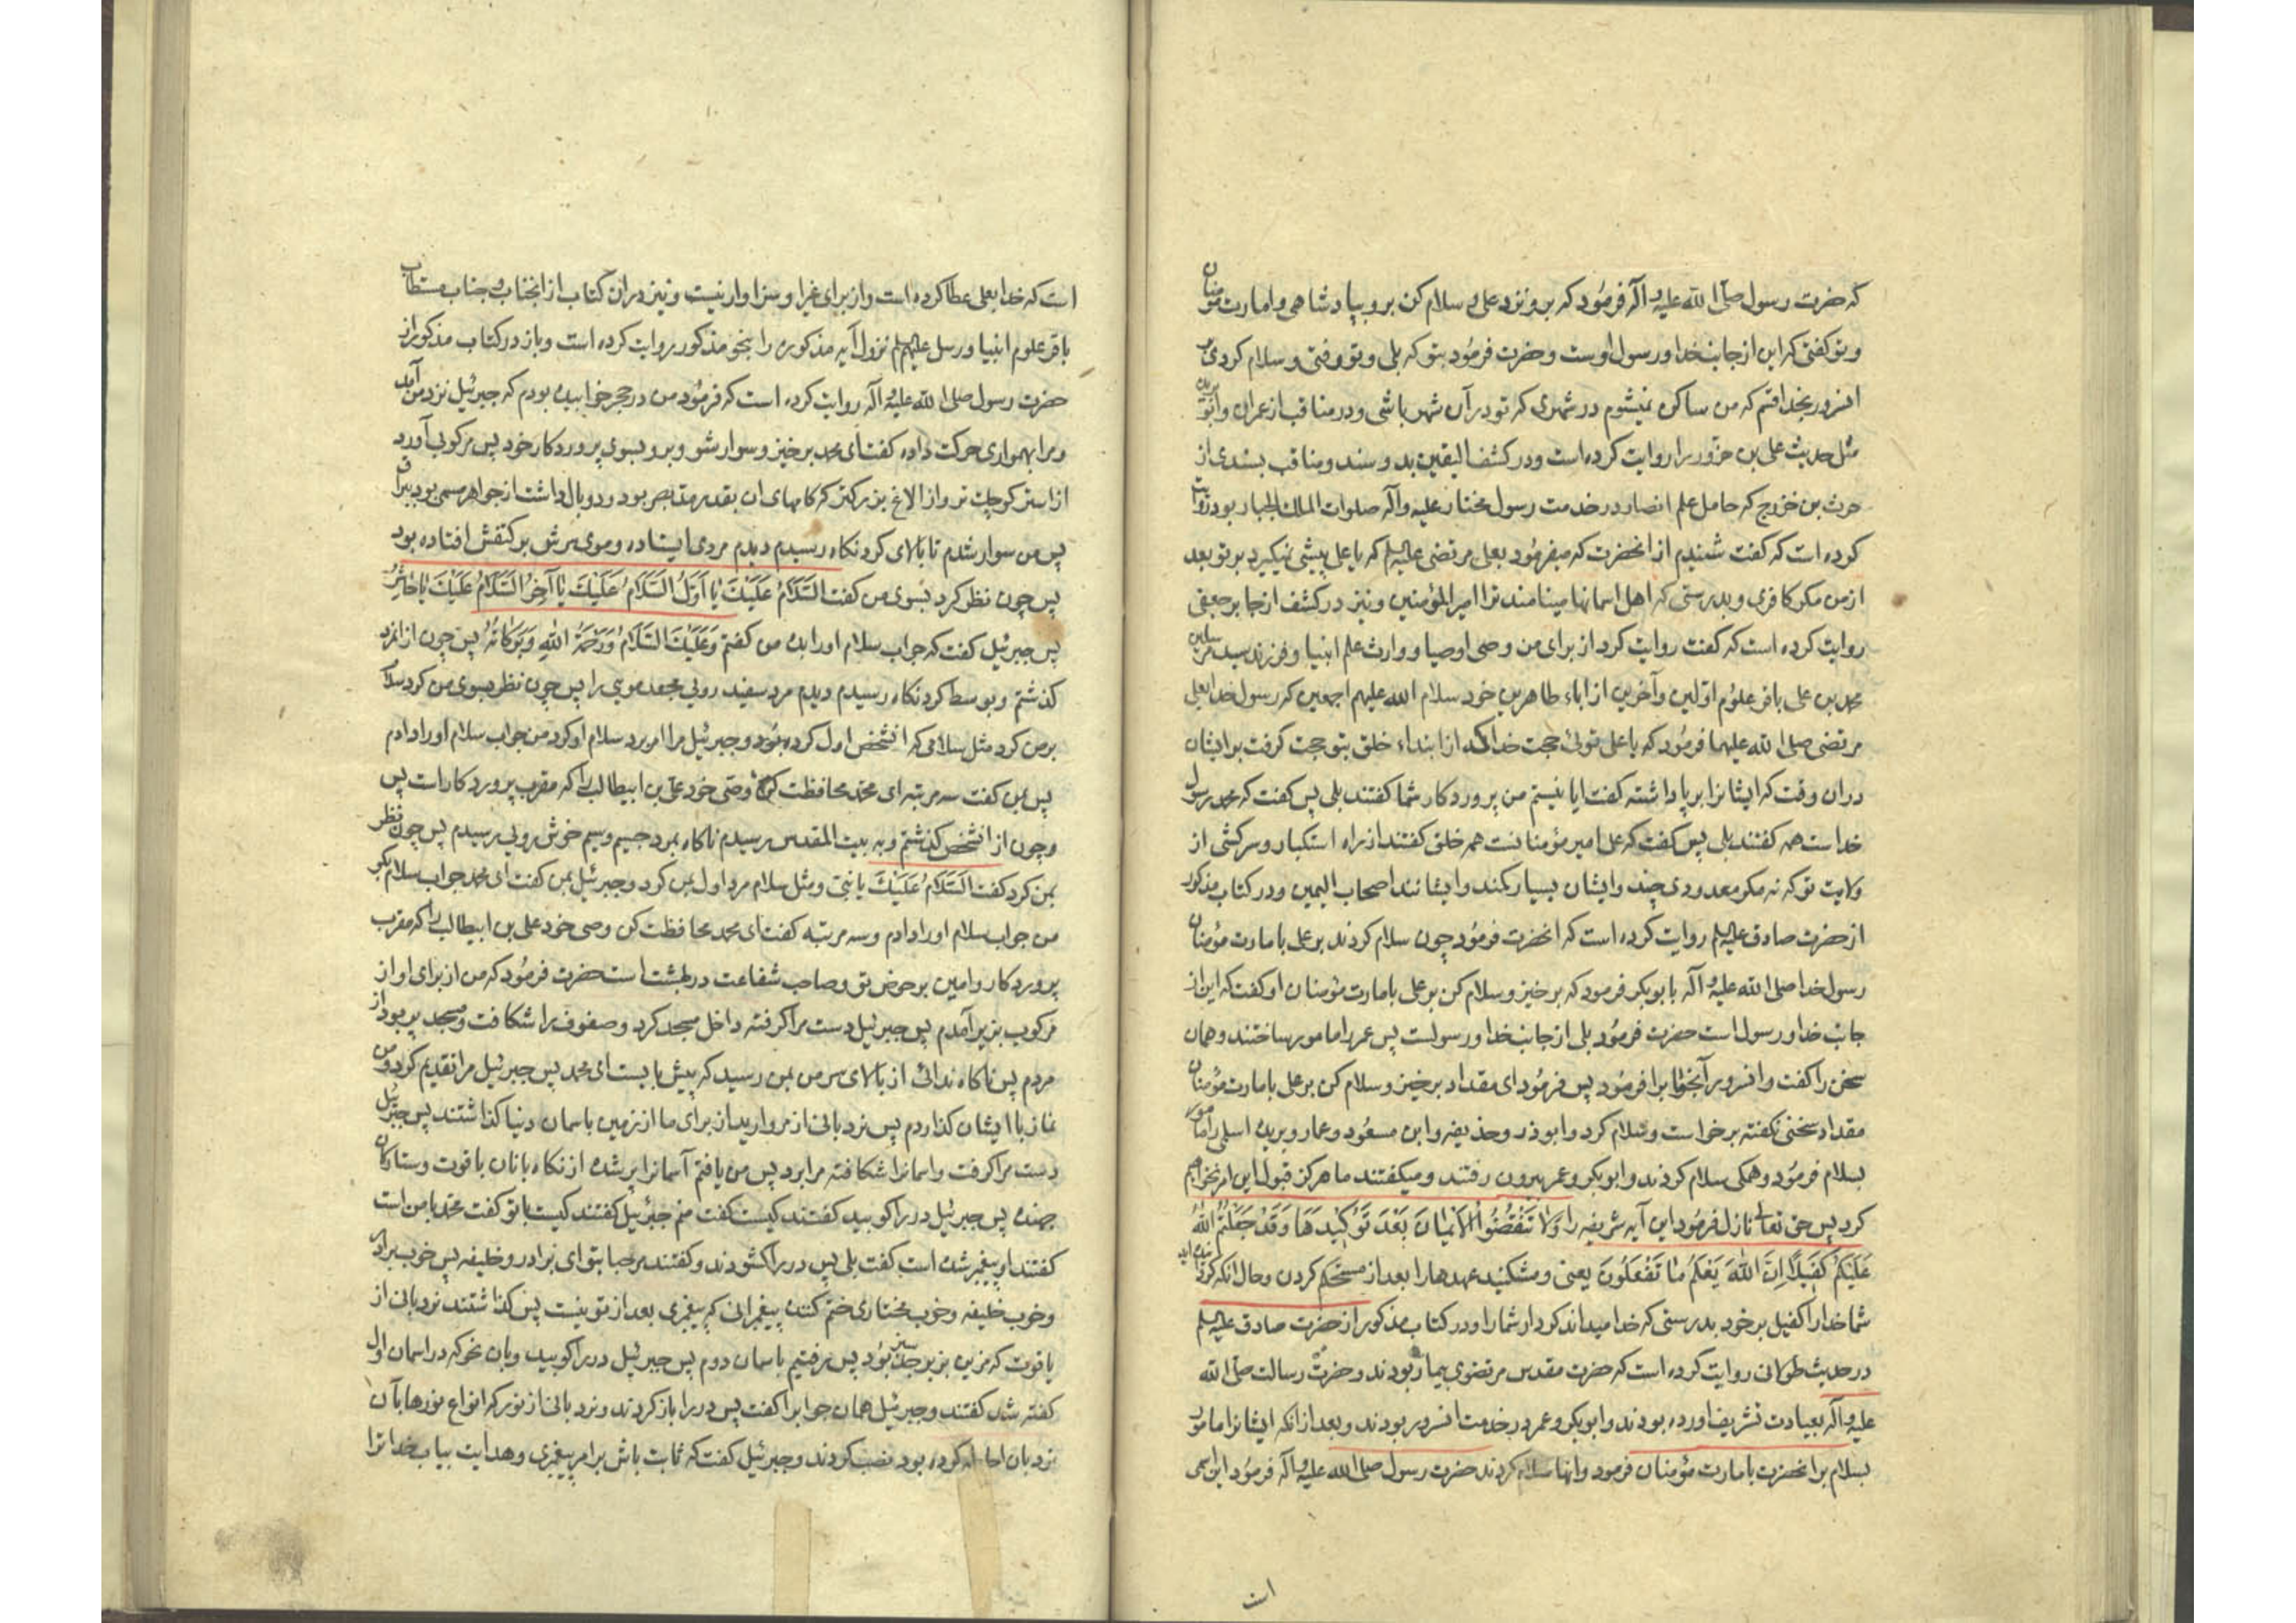 که حضرت رسول صلی الله علیه و آله فرمود که برو نزد علی و سلام کن برو بپادشاهی و امارت مؤمنان
و تو گفتی که این از جانب خدا و رسول اوست و حضرت فرمود بتو که بلی و تو رفتی و سلام کردی
بخدا قسم که من ساکن نمیشوم در شهری که تو در آن شهر باشی و در مناقب از عمران و ابو بریده
مثل حدیث علی بن حزور را روایت کرده است و در کشف الیقین بدو سند و مناقب بسندی از
حرث بن خزرج که حامل علم انصار در خدمت رسول مختار علیه و آله صلوات الملک الجبار بود روایت
کرده است که گفت شنیدم از انحضرت که میفرمود بعلی مرتضی علیه السلم که یا علی پیشی نمیگیرد بر تو بعد
از من مگر کافری و بدرستی که اهل اسمانها مینامند ترا امیر المؤمنین و نیز در کشف از جابر جعفی
روایت کرده است که گفت روایت کرد از برای من وصی اوصیا و وارث علم انبیا و فرزند سید مرسلین
محمد بن علی باقر علوم اولین و آخرین از اباء طاهرین خود سلام الله علیهم اجمعین که رسول خدا بعلی
مرتضی صلی الله علیهما فرمود که یا علی توئی حجت خدا که از ابتداء خلق بتو حجت گرفت بر ایشان
دران وقت که ایشانرا برپا داشته گفت ایا نیستم من پروردکار شما گفتند بلی پس گفت که محمد رسول
خداست همه گفتند بلی پس گفت که علی امیر مؤمنانست همه خلق گفتند از راه استکبار و سرکشی از
ولایت تو که نه مگر معدودی چند و ایشان بسیار کمند و ایشانند اصحاب الیمین و در کتاب مذکور
از حضرت صادق علیه السلم روایت کرده است که انحضرت فرمود چون سلام کردند بر علی بامارت مؤمنان
رسول خدا صلی الله علیه و آله بابوبکر فرمود که برخیز و سلام کن بر علی بامارت مؤمنان او گفت که این از
جانب خدا و رسول است حضرت فرمود بلی از جانب خدا و رسولست پس عمر را مامور ساختند و همان
سخن را گفت و انسرور همان جوابرا فرمود پس فرمود ای مقداد برخیز و سلام کن بر علی بامارت مؤمنان
مقداد سخنی نگفته برخواست و سلام کرد و ابوذر و حذیفه و ابن مسعود و عمار و بریده اسلمی را مامور
بسلام فرمود و همگی سلام کردند و ابوبکر و عمر بیرون رفتند و میگفتند ما هرگز قبول این امر نخواهیم
کرد پس حق تعالی نازل فرمود این آیه شریفه را وَلَا تَنْقُضُوا الْأَيْمَانَ بَعْدَ تَوْكِيدِهَا وَقَدْ جَعَلْتُمُ اللهَ
عَلَيْكُمْ كَفِيلًا إِنَّ اللهَ يَعْلَمُ مَا تَفْعَلُونَ یعنی و مشکنید عهدها را بعد از مستحکم کردن و حال انکه گردانیده اید
شما خدا را کفیل بر خود بدرستی که خدا میداند کردار شما را و در کتاب مذکور از حضرت صادق علیه السلم
در حدیث طولانی روایت کرده است که حضرت مقدس مرتضوی بیمار بودند و حضرت رسالت صلی الله
علیه و آله بعیادت تشریف اورده بودند و ابوبکر و عمر در خدمت انسرور بودند و بعد از انکه ایشانرا مامور
بسلام بر انحضرت بامارت مؤمنان فرمود و انها سلام کردند حضرت رسول صلی الله علیه و آله فرمود این اسمی
ات
است که خدا بعلی عطا کرده است و از برای غیر او سزاوار نیست و نیز دران کتاب از انجناب و جناب مستطاب
باقر علوم انبیا و رسل علیهم السلم نزول آیه مذکوره را بنحو مذکور روایت کرده است و باز در کتاب مذکور از
حضرت رسول صلی الله علیه و آله روایت کرده است که فرمود من در حجر خوابیده بودم که جبرئیل نزد من آمد
و مرا بهمواری حرکت داده گفت ای محمد برخیز و سوار شو و برو بسوی پروردکار خود پس مرکوبی آورد
از استر کوچک تر و از الاغ بزرکتر که کامهای ان بقدر مد بصر بود و دو بال داشت از جواهر مسمی بود ببراق
پس من سوار شدم تا بالای کرد نکاه رسیدم دیدم مردی ایستاده و موی سرش بر کتفش افتاده بود
پس چون نظر کرد بسوی من گفت السَّلَامُ عَلَيْكَ يَا أَوَّلُ السَّلَامُ عَلَيْكَ يَا آخِرُ السَّلَامُ عَلَيْكَ يَا حَاشِرُ
پس جبرئیل گفت که جواب سلام او را بده من گفتم وَعَلَيْكَ السَّلَامُ وَرَحْمَةُ اللهِ وَبَرَكَاتُهُ پس چون از انمرد
گذشتم و بوسط کردنکاه رسیدم دیدم مرد سفید رویی مجعد مویی را پس چون نظر بسوی من کرد سلام
بر من کرد مثل سلامی که انشخص اول کرده بود و جبرئیل مرا امر برد سلام او کرد من جواب سلام او را دادم
پس بمن گفت سه مرتبه ای محمد محافظت کن وصی خود علی بن ابیطالب را که مقرب پروردکار است پس
و چون از انشخص گذشتم و به بیت المقدس رسیدم ناکاه بمرد جسیم و سیم خوش رویی رسیدم پس چون نظر
بمن کرد گفت السَّلَامُ عَلَيْكَ یا نبی و مثل سلام مرد اول بمن کرد و جبرئیل بمن گفت ای محمد جواب سلام بگو
من جواب سلام او را دادم و سه مرتبه گفت ای محمد محافظت کن وصی خود علی بن ابیطالب را که مقرب
پروردکار و امین بر حوض تو و صاحب شفاعت در بهشت است حضرت فرمود که من از برای او از
مرکوب بزیر آمدم پس جبرئیل دست مرا گرفته داخل مسجد کرد و صفوف را شکافت و مسجد پر بود از
مردم پس ناکاه ندائی از بالای سر من بمن رسید که پیش بایست ای محمد پس جبرئیل مرا تقدیم کرد و من
نماز با ایشان گذاردم پس نردبانی از مروارید از برای ما از زمین باسمان دنیا گذاشتند پس جبرئیل
دست مرا گرفت و اسمانرا شکافته مرا برد پس من یافتم آسمانرا پر شده از
جهنده پس جبرئیل در را کوبید گفتند کیست گفت منم جبرئیل گفتند کیست با تو گفت محمد با من است
گفتند او پیغمبر شده است گفت بلی پس در را کشودند و گفتند مرحبا بتو ای برادر و خلیفه پس خوب برادر
و خوب خلیفه و خوب مختاری ختم کننده پیغمبرانی که پیغمبری بعد از تو نیست پس گذاشتند نردبانی از
یاقوت که مزین بزبرجد سبز بود پس رفتیم باسمان دوم پس جبرئیل در را کوبید و بان نحو که در اسمان اول
گفته شد گفتند و جبرئیل همان جوابرا گفت پس در را باز کردند و نردبانی از نور که انواع نورها بآن
نردبان احاطه کرده بود نصب کردند و جبرئیل گفت که ثابت باش بر امر پیغمبری و هدایت بیاب خدا ترا